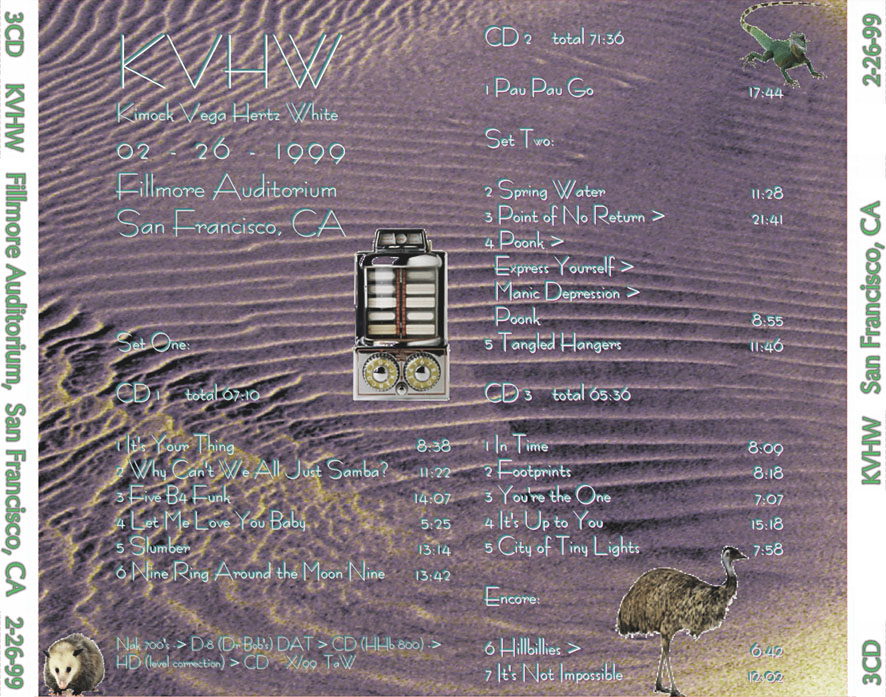 3CD KVHW Fillmore Auditorium, San Francisco, CA 2-26-99
KVHW
Kimock Vega Hertz White
02 - 26 - 1999
Fillmore Auditorium
San Francisco, CA
Set One:
CD 1 total 67:10
1 It's Your Thing 8:38
2 Why Can't We All Just Samba? 11:22
3 Five B4 Funk 14:07
4 Let Me Love You Baby 5:25
5 Slumber 13:14
6 Nine Ring Around the Moon Nine 13:42
Nak 700's -> D-8 (Dr Bob's) DAT > CD (HHb 800) ->
HD (level correction) > CD X/99 TaW
CD 2 total 71:36
1 Pau Pau Go 17:44
Set Two:
2 Spring Water 11:28
3 Point of No Return > 21:41
4 Poonk >
Express Yourself >
Manic Depression >
Poonk 8:55
5 Tangled Hangers 11:46
CD 3 total 65:36
1 In Time 8:09
2 Footprints 8:18
3 You're the One 7:07
4 It's Up to You 15:18
5 City of Tiny Lights 7:58
Encore:
6 Hillbillies > 6:42
7 It's Not Impossible 12:02
3CD KVHW San Francisco, CA 2-26-99